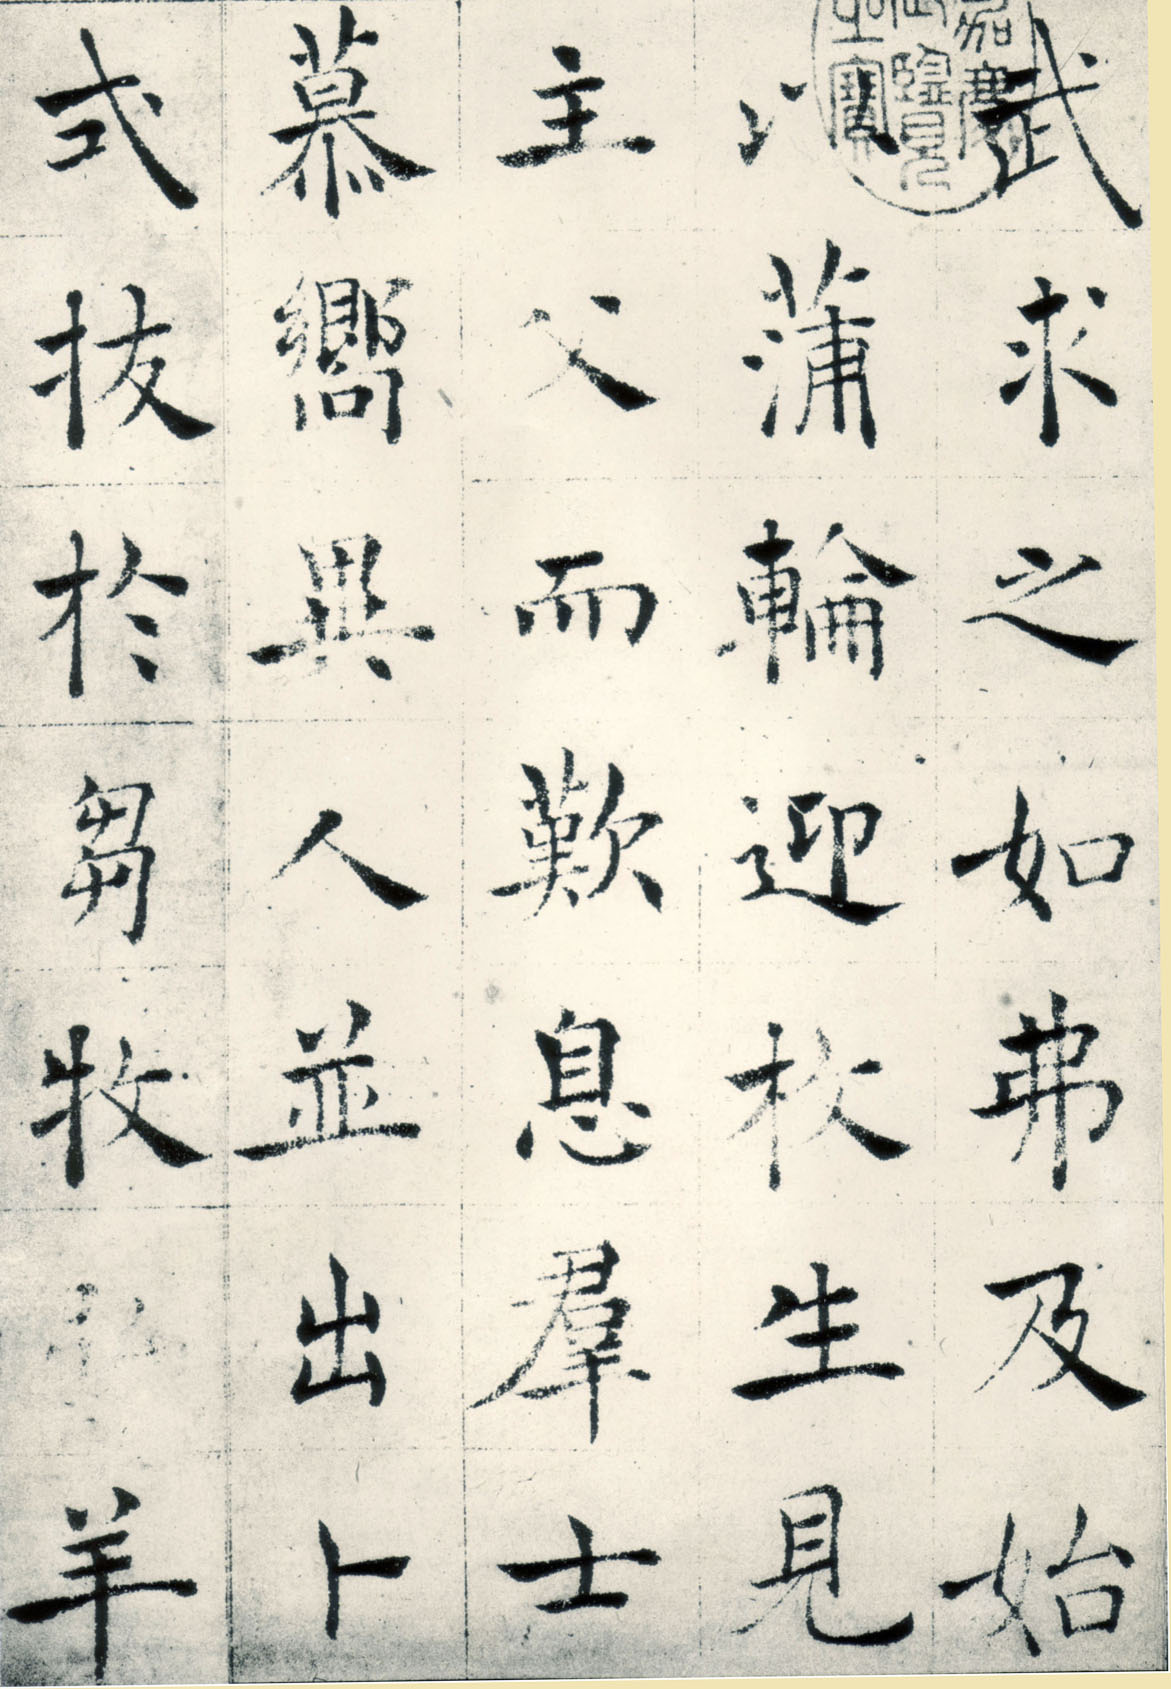 武求之如弗及始
以蒲輪迎枚生見
主父而歎息羣士
慕嚮異人並出卜
式拔於芻牧羊
嘉慶
御覽
之寶